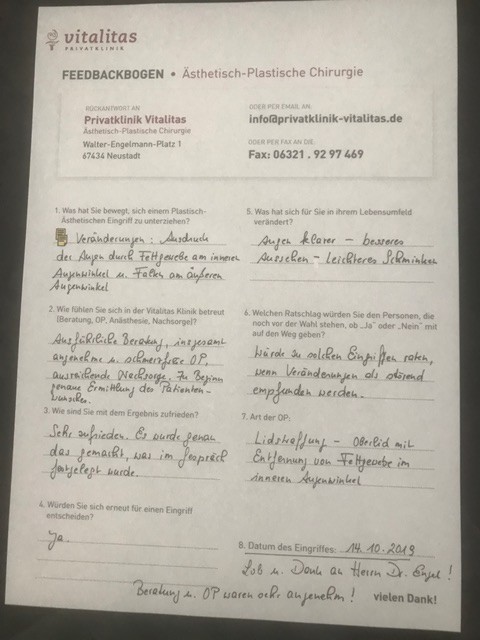 vitalitas
PRIVATKLINIK
FEEDBACKBOGEN • Ästhetisch-Plastische Chirurgie
RÜCKANTWORT AN
Privatklinik Vitalitas
Ästhetisch-Plastische Chirurgie
Walter-Engelmann-Platz 1
67434 Neustadt
ODER PER EMAIL AN:
info@privatklinik-vitalitas.de
ODER PER FAX AN DIE:
Fax: 06321 . 92 97 469
1. Was hat Sie bewegt, sich einem Plastisch-
Ästhetischen Eingriff zu unterziehen?
Veränderungen: Ausdruck
der Augen durch Fettgewebe am inneren
Augenwinkel u. Falten am äußeren
Augenwinkel
2. Wie fühlen Sie sich in der Vitalitas Klinik betreut
(Beratung, OP, Anästhesie, Nachsorge)?
Ausführliche Beratung, insgesamt
angenehme u. schmerzfreie OP,
ausreichende Nachsorge. Zu Beginn
genaue Ermittlung des Patienten-
wunsches.
3. Wie sind Sie mit dem Ergebnis zufrieden?
Sehr zufrieden. Es wurde genau
das gemacht, was im Gespräch
festgelegt wurde.
4. Würden Sie sich erneut für einen Eingriff
entscheiden?
Ja.
5. Was hat sich für Sie in ihrem Lebensumfeld
verändert?
Augen klarer - besseres
Aussehen - leichteres Schminken
6. Welchen Ratschlag würden Sie den Personen, die
noch vor der Wahl stehen, ob „Ja" oder „Nein" mit
auf den Weg geben?
Würde zu solchen Eingriffen raten,
wenn Veränderungen als störend
empfunden werden.
7. Art der OP:
Lidstraffung - Oberlid mit
Entfernung von Fettgewebe im
inneren Augenwinkel
8. Datum des Eingriffes: 14.10.2019
Lob u. Dank an Herrn Dr. Engel!
Beratung u. OP waren sehr angenehm!
vielen Dank!